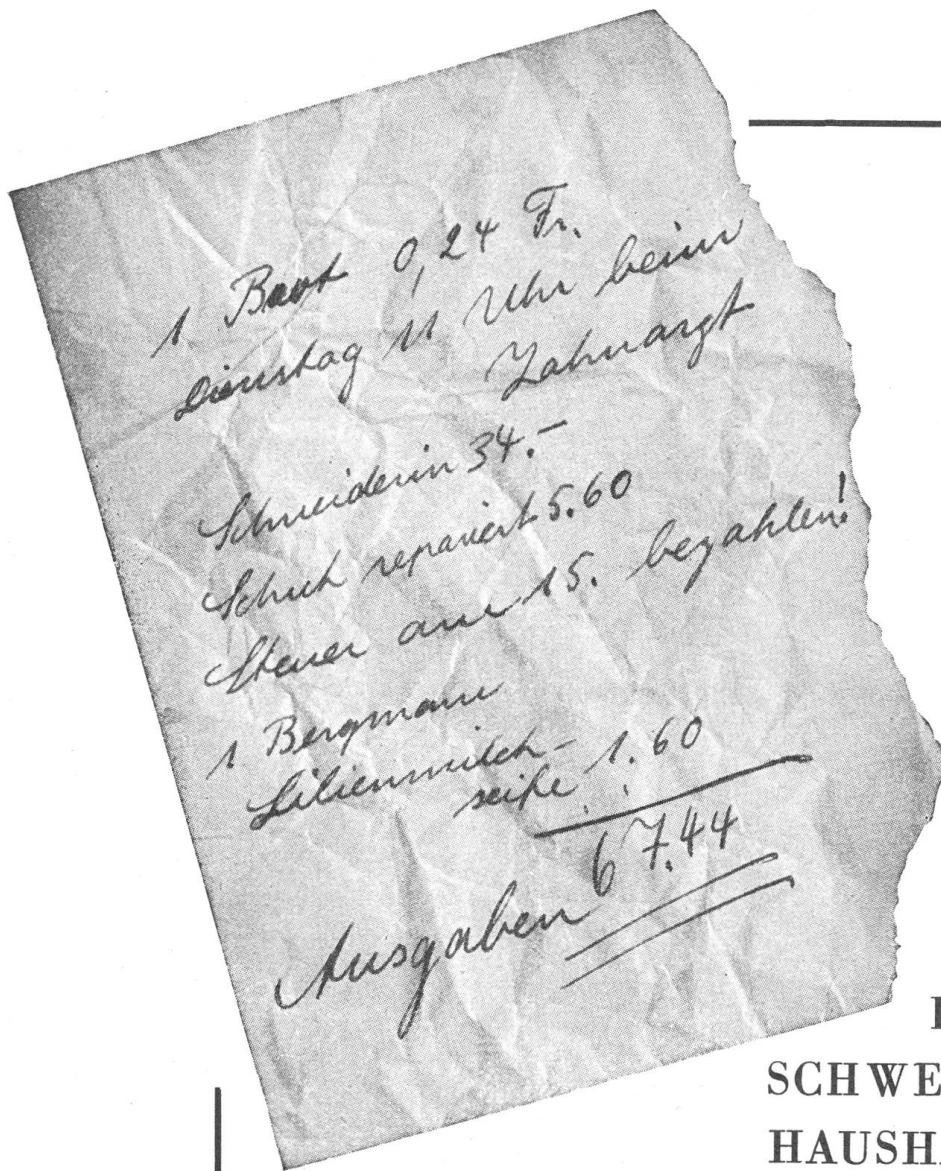 1 Brot 0,24 Fr.
Dienstag 11 Uhr beim
Zahnarzt
Schneiderin 34.–
Schuh repariert 5.60
Steuer am 15. bezahlen!
1 Bergmann
Lilienmilch-
seife 1.60
67.44
Ausgaben
SCHWE
HAUSHA